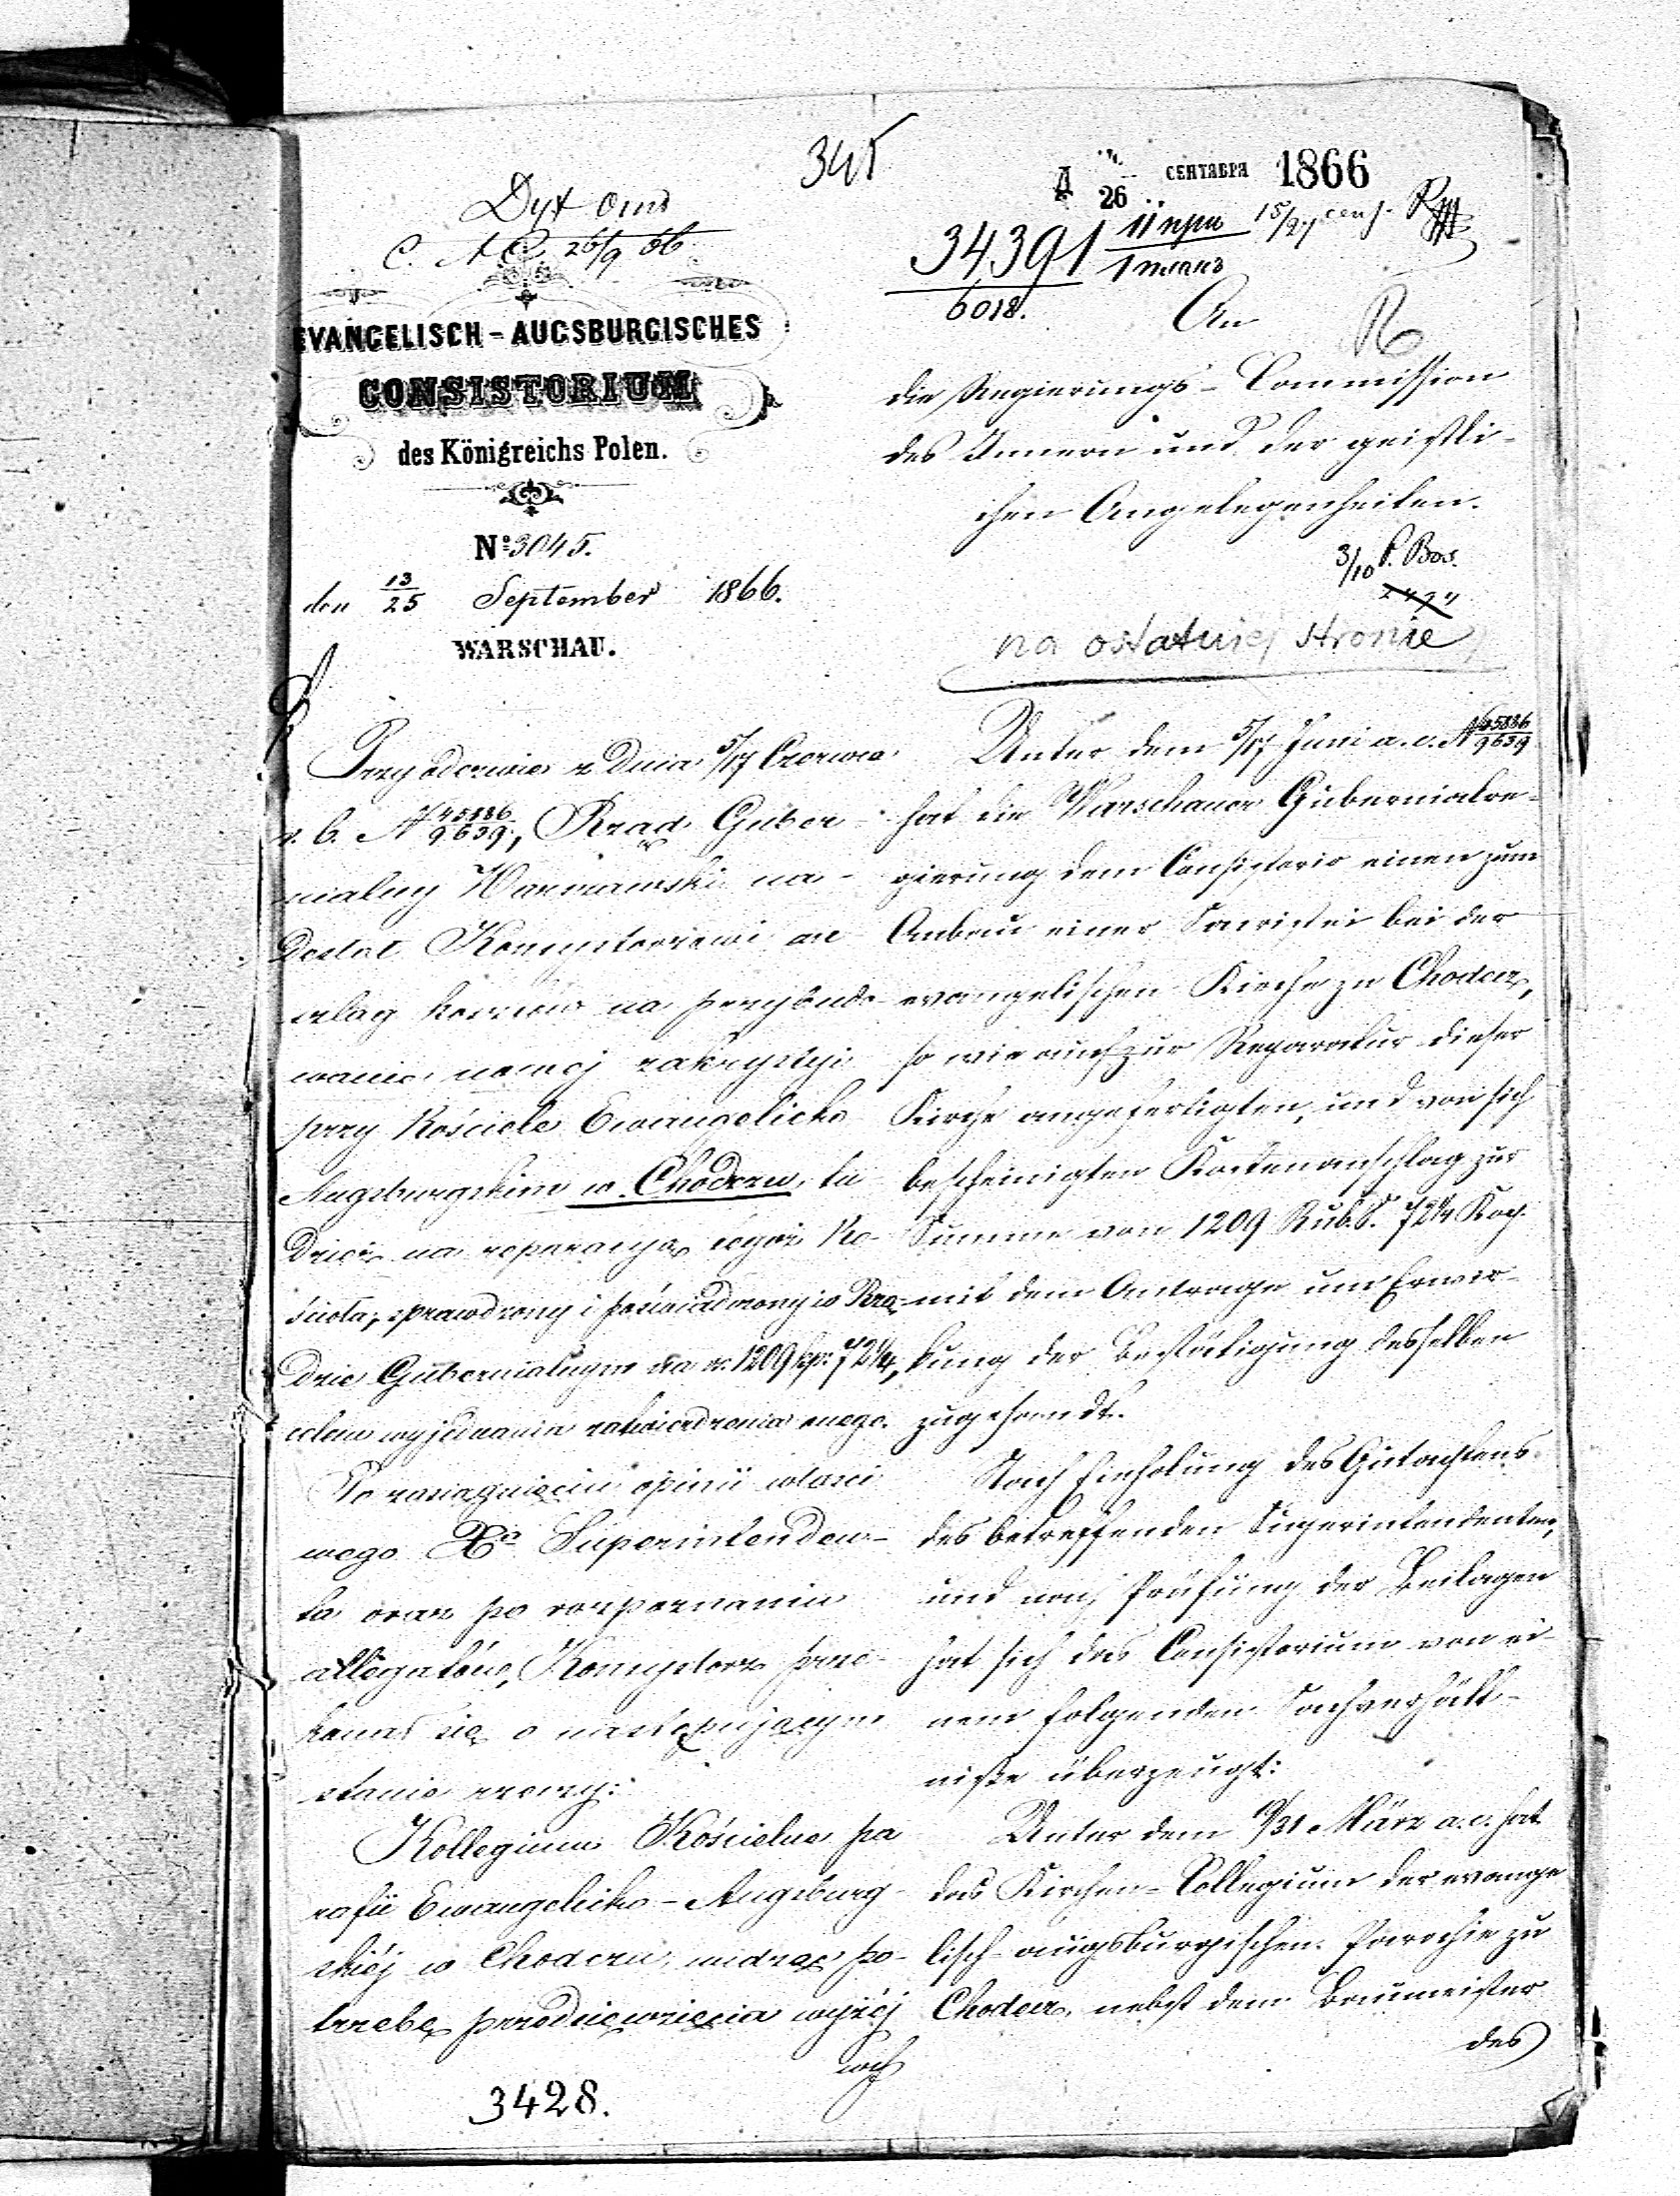 345
Д 26 СЕНТЯБРЯ 1866
34391
6018.
11 прил
15/27 сент.
C. A. C. 26/9 66
EVANGELISCH-AUGSBURGISCHES
CONSISTORIUM
des Königreichs Polen.
No: 3045.
den 13/25 September 1866.
WARSCHAU.
An
die Regierungs-Commission
des Innern und der geistli-
chen Angelegenheiten.
3/10 P. Bos.
na ostatniej stronie
Przy odezwie z dnia 5/17 Czerwca
r. b. N 45886/9639, Rząd Guber-
nialny Warszawski na-
desłał Konsystorzowi an-
szlag kosztów na przybudo-
wanie nowej zakrystyi
przy Kościele Ewangelicko
Augsburgskim w Chodczu, tu
dzież na reperacyą tegoż Ko-
ścioła, sprawdzony i poświadczony w Rzą-
dzie Gubernialnym na rs. 1209 kop. 72 1/4,
celem wyjednania zatwierdzenia onego.
Po zasiągnięciu opinii właści
wego Xa Superintenden-
ta oraz po rozpoznaniu
allegatów, Konsystorz prze-
konał się o następującym
stanie rzeczy:
Kollegium Kościelne pa
rafii Ewangelicko-Augsburg-
skiéj w Chodczu, widząc po-
trzebę przedsięwzięcia wyżéj
wych
3428.
Unter dem 5/17 Juni a. c. N 45886/9639
hat die Warschauer Gubernialre-
gierung dem Consistorio einen zum
Anbau einer Sacristei bei der
evangelischen Kirche zu Chodecz,
so wie auch zur Reparatur dieser
Kirche angefertigten, und von sich
bescheinigten Kostenanschlag zur
Summe von 1209 Rub. S. 72 1/4 Kop.
mit dem Antrage um Erwir-
kung der Bestätigung desselben
zugesandt.
Nach Einholung des Gutachtens
des betreffenden Superintendenten,
und nach Prüfung der Beilagen
hat sich das Consistorium von ei-
nem folgenden Sachverhält-
nisse überzeugt:
Unter dem 19/31 März a. c. hat
das Kirchen-Collegium der evange
lisch-augsburgischen Parochie zu
Chodecz, nebst dem Baumeister
des